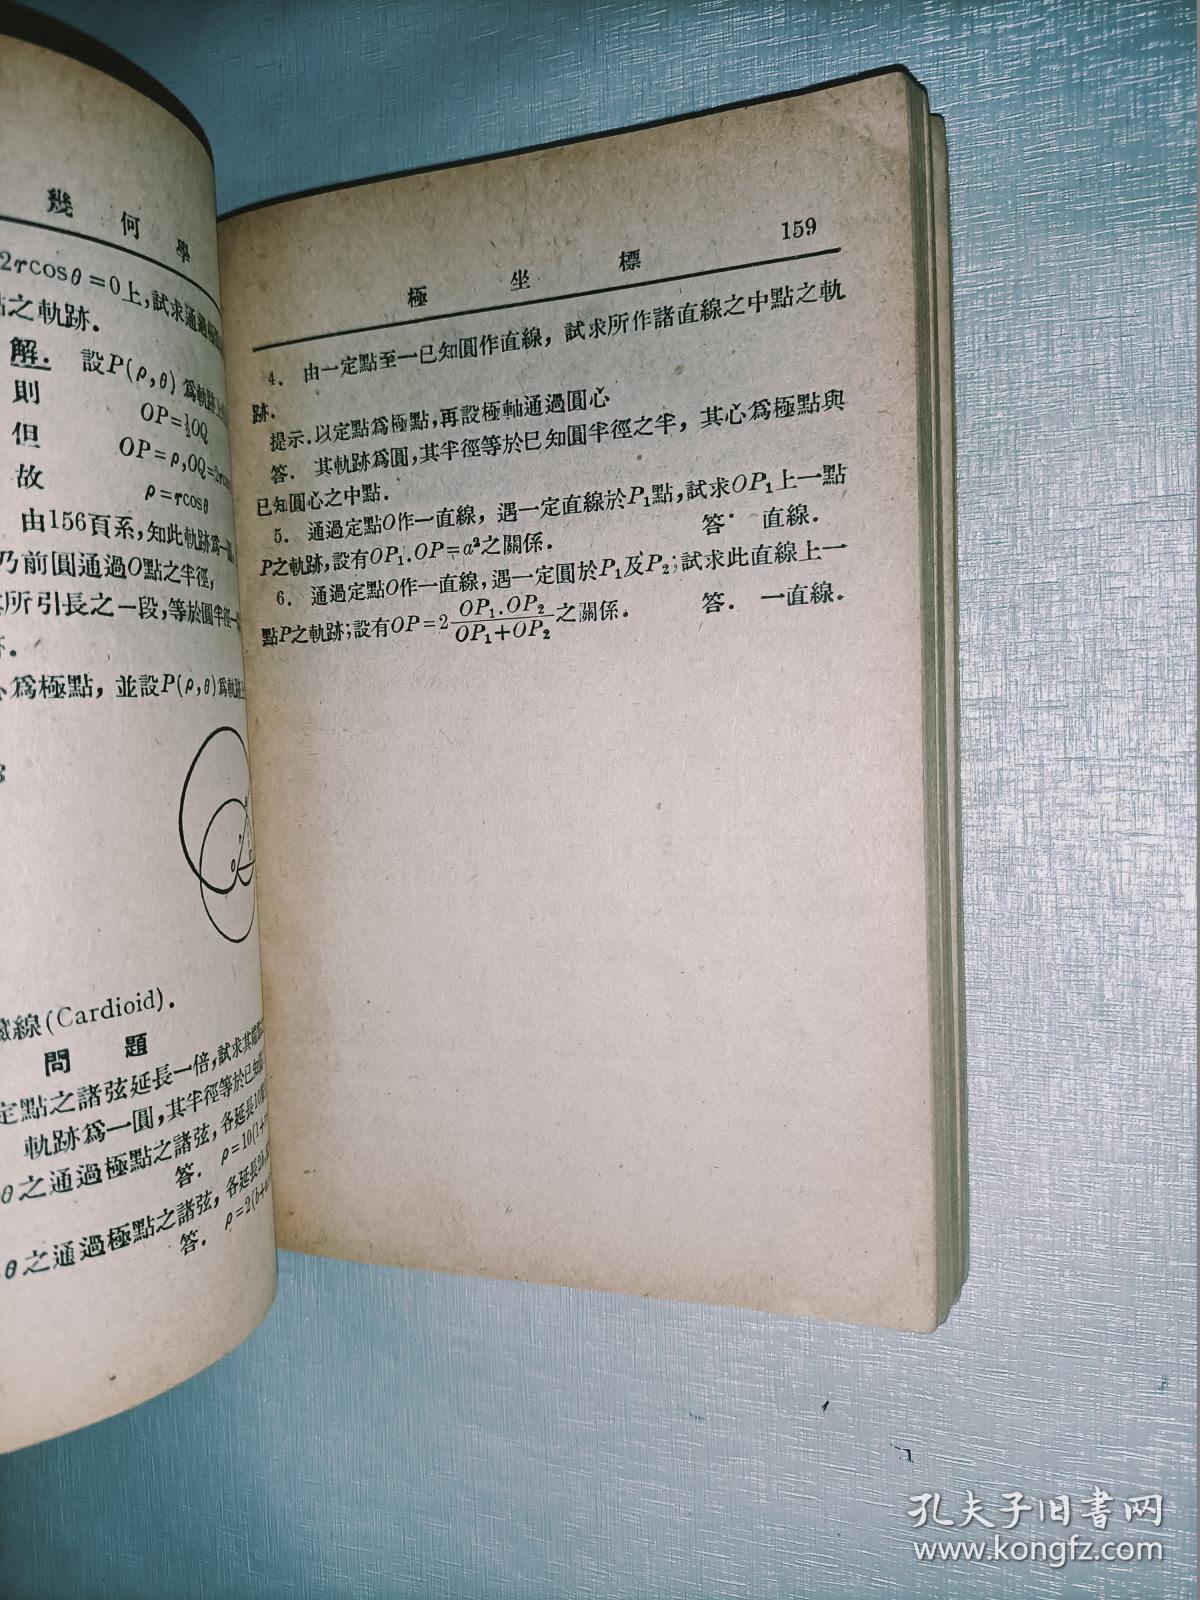 幾何學
2rcosθ=0上,試求通過
之軌跡.
解. 設P(ρ,θ)爲軌跡上
則 OP=½OQ
但 OP=ρ,OQ=2r
故 ρ=rcosθ
由156頁系,知此軌跡爲一
乃前圓通過O點之半徑,
所引長之一段,等於圓半徑
爲極點,並設P(ρ,θ)爲軌跡
O
線(Cardioid).
問題
定點之諸弦延長一倍,試求其
軌跡爲一圓,其半徑等於已知
θ之通過極點之諸弦,各延長10
答. ρ=10(1+
θ之通過極點之諸弦,各延長2b,
答. ρ=2(b+
極坐標 159
4. 由一定點至一已知圓作直線,試求所作諸直線之中點之軌
跡.
提示.以定點爲極點,再設極軸通過圓心
答. 其軌跡爲圓,其半徑等於已知圓半徑之半,其心爲極點與
已知圓心之中點.
5. 通過定點O作一直線,遇一定直線於P₁點,試求OP₁上一點
P之軌跡,設有OP₁.OP=a²之關係. 答. 直線.
6. 通過定點O作一直線,遇一定圓於P₁及P₂;試求此直線上一
點P之軌跡;設有OP=2 OP₁.OP₂/OP₁+OP₂ 之關係. 答. 一直線.
孔夫子旧書网
www.kongfz.com